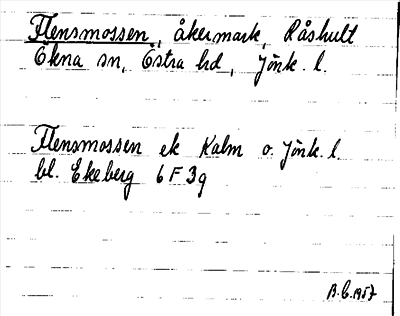 Flensmossen, åkermark, Råshult
Ökna sn, Östra hd, Jönk. l.
Flensmossen ek Kalm o. Jönk. l.
bl. Ekeberg 6 F 3 g
B. C. 1957